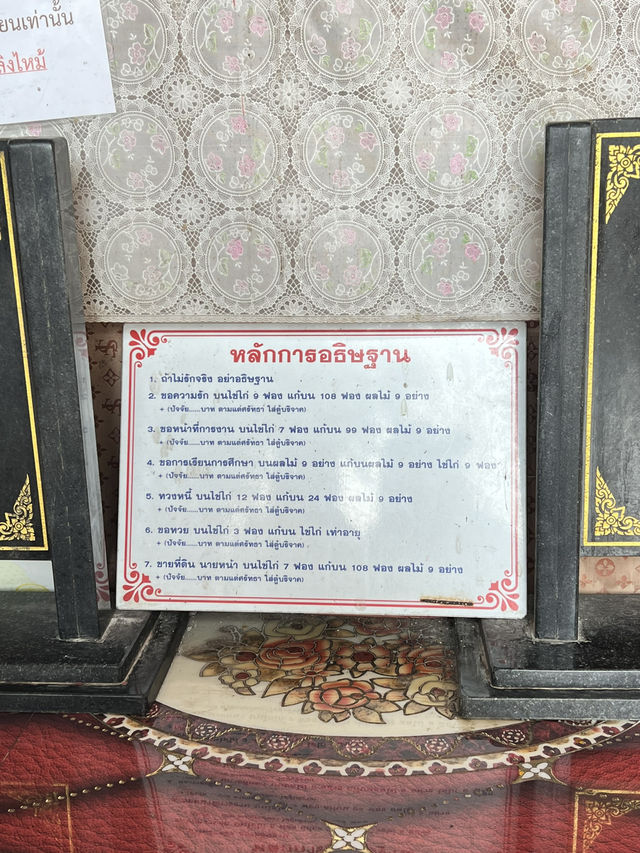 ยนเท่านั้น
หลักการอธิษฐาน
1. ถ้าไม่รักจริง อย่าอธิษฐาน
2. ขอความรัก บนไข่ไก่ 9 ฟอง แก้บน 108 ฟอง ผลไม้ 9 อย่าง
+ (ปัจจัย.....บาท ตามแต่ศรัทธา ใส่ตู้บริจาค)
3. ขอหน้าที่การงาน บนไข่ไก่ 7 ฟอง แก้บน 99 ฟอง ผลไม้ 9 อย่าง
+ (ปัจจัย.....บาท ตามแต่ศรัทธา ใส่ตู้บริจาค)
4. ขอการเรียนการศึกษา บนผลไม้ 9 อย่าง แก้บนผลไม้ 9 อย่าง ไข่ไก่ 9 ฟอง
+ (ปัจจัย.....บาท ตามแต่ศรัทธา ใส่ตู้บริจาค)
5. ทวงหนี้ บนไข่ไก่ 12 ฟอง แก้บน 24 ฟอง ผลไม้ 9 อย่าง
+ (ปัจจัย.....บาท ตามแต่ศรัทธา ใส่ตู้บริจาค)
6. ขอหวย บนไข่ไก่ 3 ฟอง แก้บน ไข่ไก่ เท่าอายุ
+ (ปัจจัย.....บาท ตามแต่ศรัทธา ใส่ตู้บริจาค)
7. ขายที่ดิน นายหน้า บนไข่ไก่ 7 ฟอง แก้บน 108 ฟอง ผลไม้ 9 อย่าง
+ (ปัจจัย.....บาท ตามแต่ศรัทธา ใส่ตู้บริจาค)